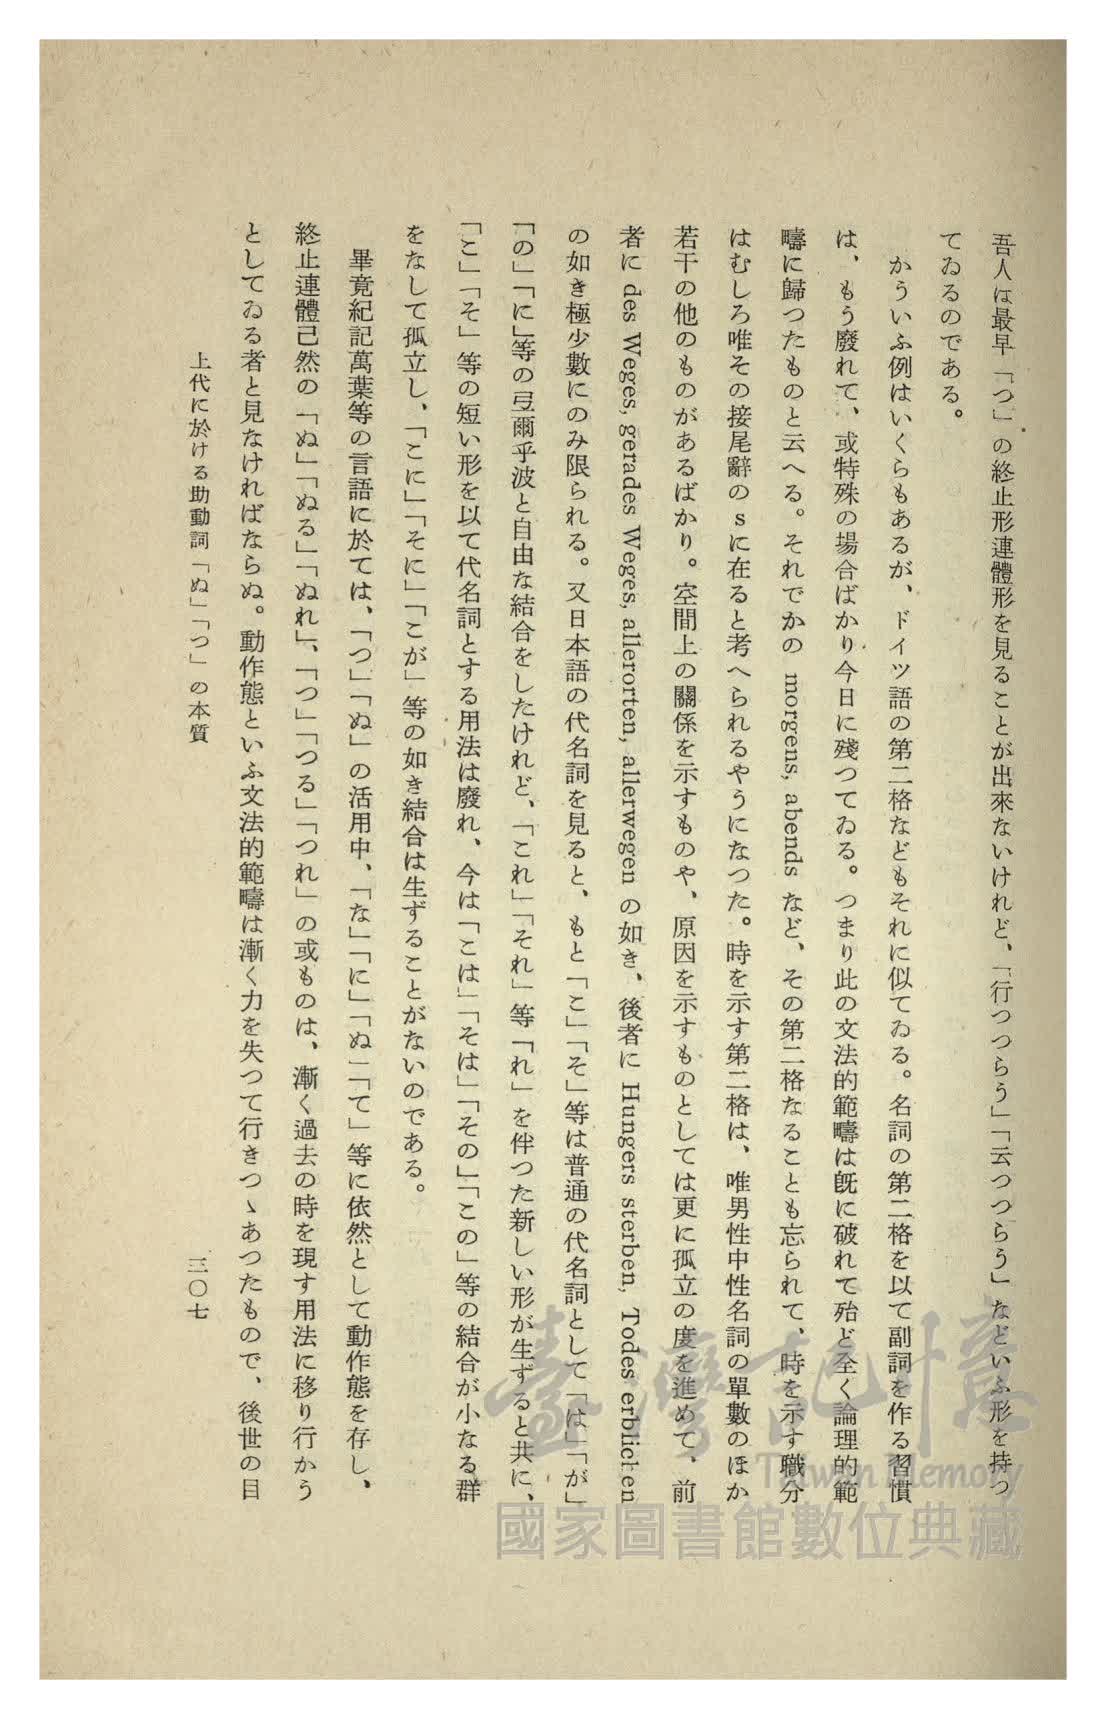 吾人は最早「つ」の終止形連體形を見ることが出來ないけれど、「行つつらう」「云つつらう」などいふ形を持つ
てゐるのである。
かういふ例はいくらもあるが、ドイツ語の第二格などもそれに似てゐる。名詞の第二格を以て副詞を作る習慣
は、もう廢れて、或特殊の場合ばかり今日に殘つてゐる。つまり此の文法的範疇は旣に破れて殆ど全く論理的範
疇に歸つたものと云へる。それでかの morgens, abends など、その第二格なることも忘られて、時を示す職分
はむしろ唯その接尾辭のsに在ると考へられるやうになつた。時を示す第二格は、唯男性中性名詞の單數のほか
若干の他のものがあるばかり。空間上の關係を示すものや、原因を示すものとしては更に孤立の度を進めて、前
者に des Weges, gerades Weges, allerorten, allerwegen の如き、後者に Hungers sterben, Todes erblichen
の如き極少數にのみ限られる。又日本語の代名詞を見ると、もと「こ」「そ」等は普通の代名詞として「は」「が」
「の」「に」等の弖爾乎波と自由な結合をしたけれど、「これ」「それ」等「れ」を伴つた新しい形が生ずると共に、
「こ」「そ」等の短い形を以て代名詞とする用法は廢れ、今は「こは」「そは」「その」「この」等の結合が小なる群
をなして孤立し、「こに」「そに」「こが」等の如き結合は生ずることがないのである。
畢竟紀記萬葉等の言語に於ては、「つ」「ぬ」の活用中、「な」「に」「ぬ」「て」等に依然として動作態を存し、
終止連體已然の「ぬ」「ぬる」「ぬれ」、「つ」「つる」「つれ」の或ものは、漸く過去の時を現す用法に移り行かう
としてゐる者と見なければならぬ。動作態といふ文法的範疇は漸く力を失つて行きつゝあつたもので、後世の目
上代に於ける助動詞「ぬ」「つ」の本質
三〇七
臺灣記憶
Taiwan Memory
國家圖書館數位典藏